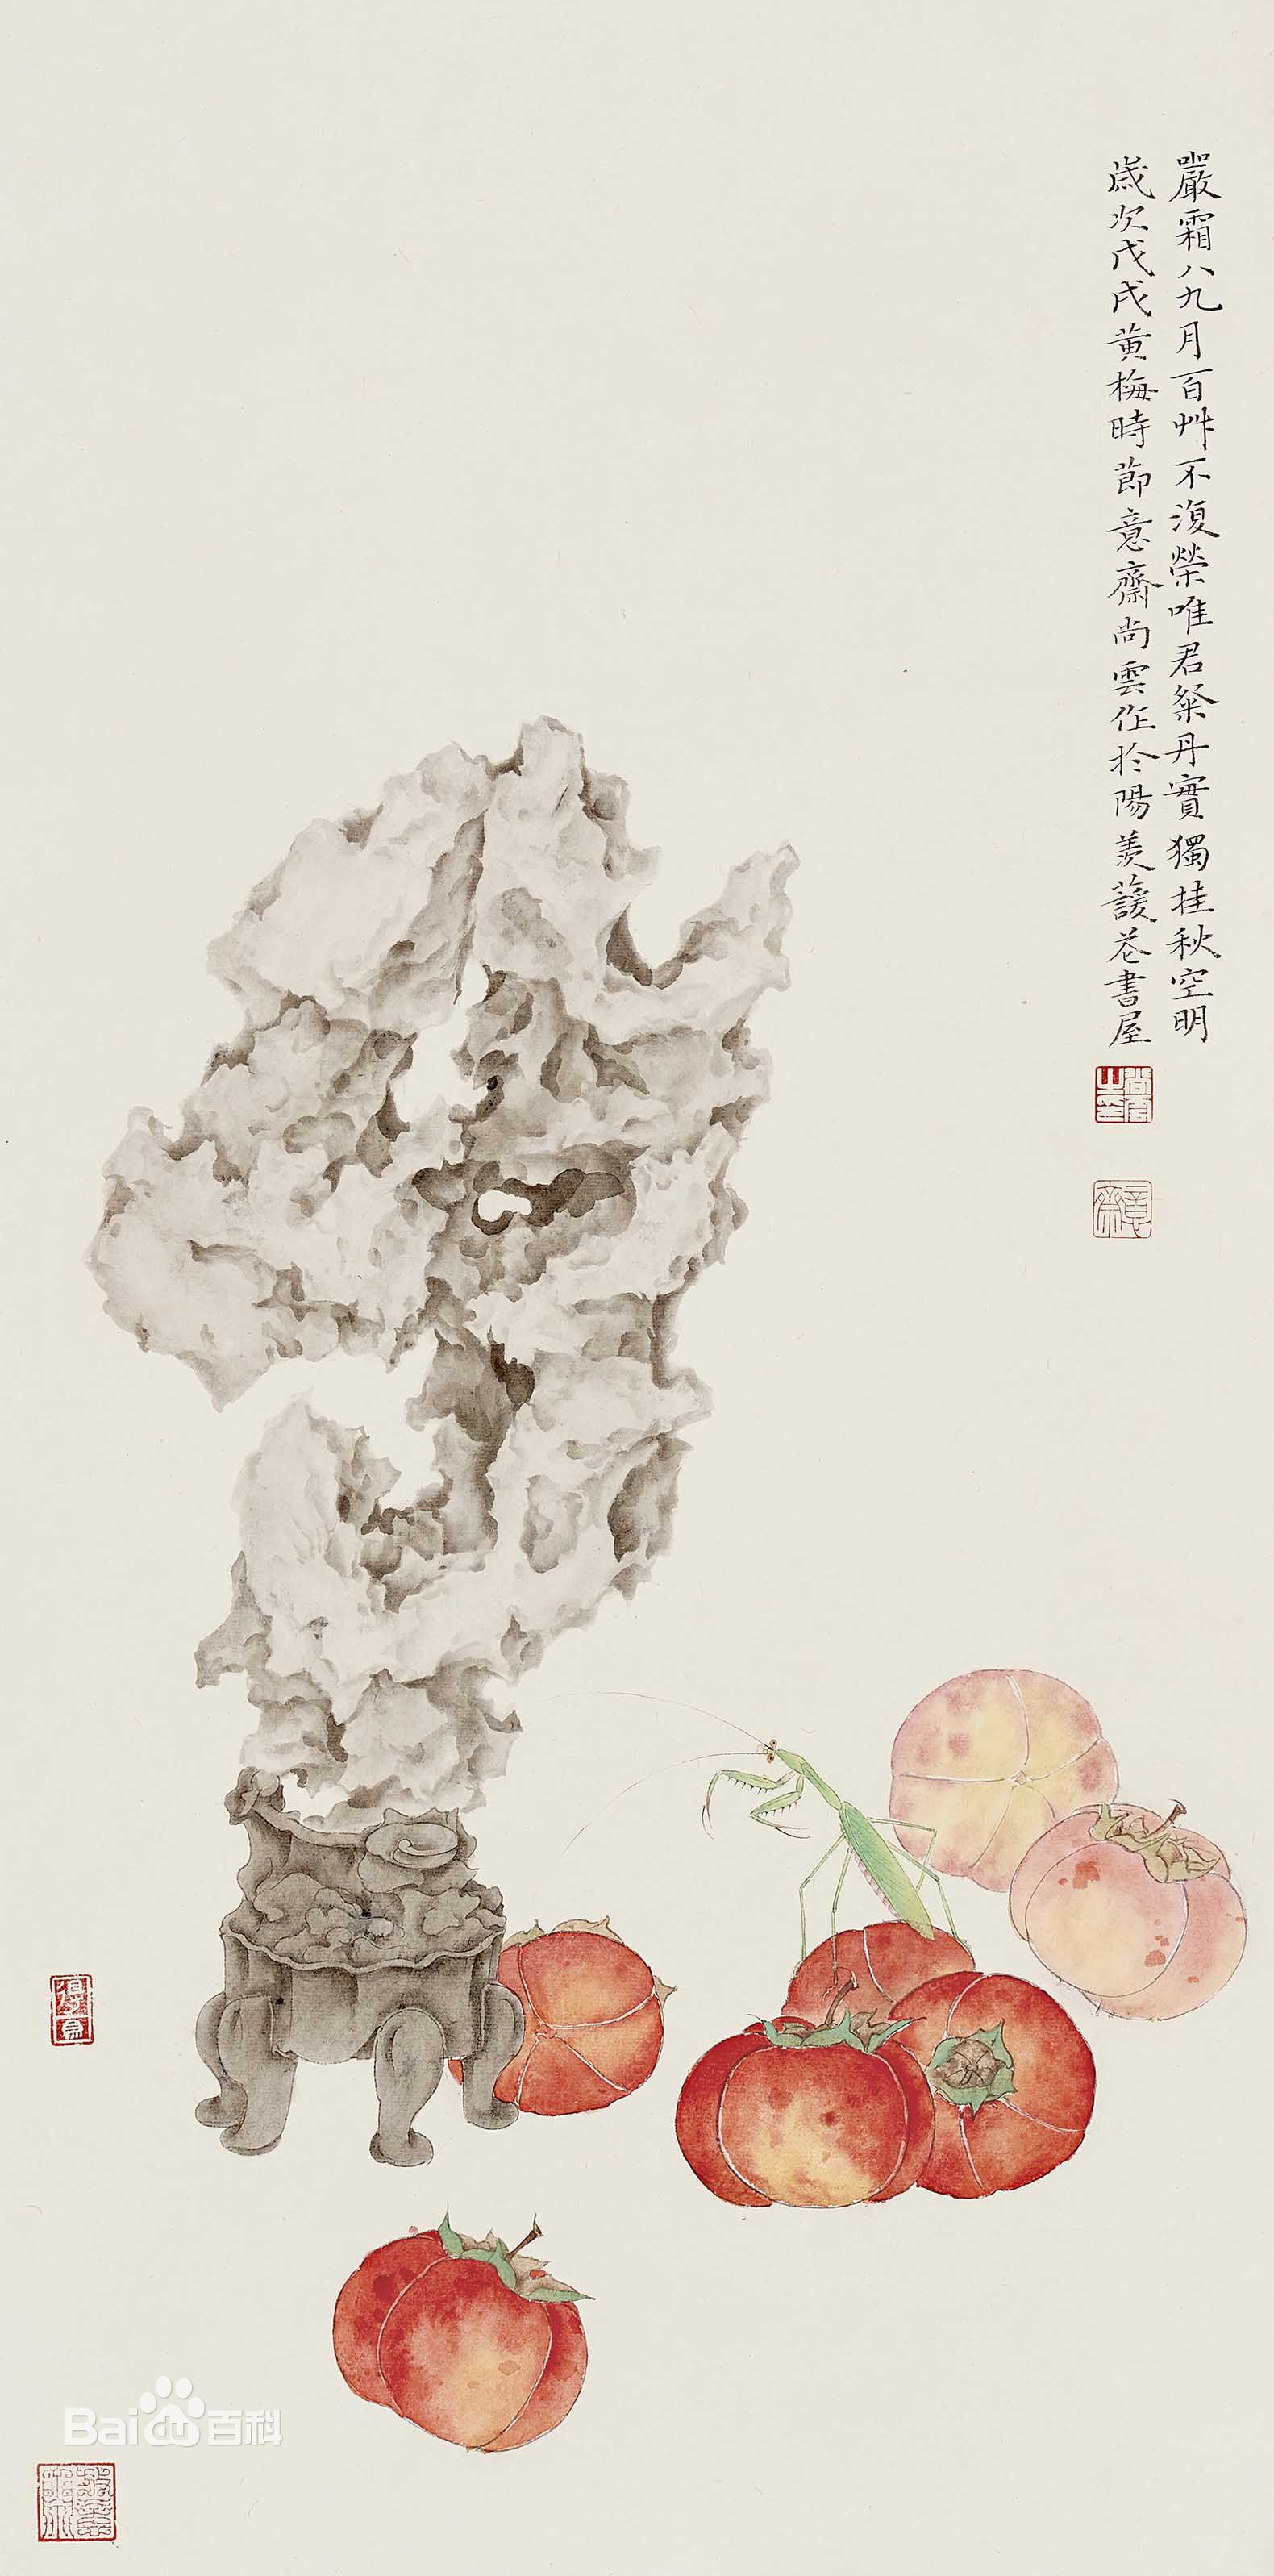 嚴霜八九月百艸不復榮唯君粲丹實獨挂秋空明
歲次戊戌黄梅時節意齋尚雲作於陽羨蘐花書屋
尚雲之印
意齋
Bai du 百科